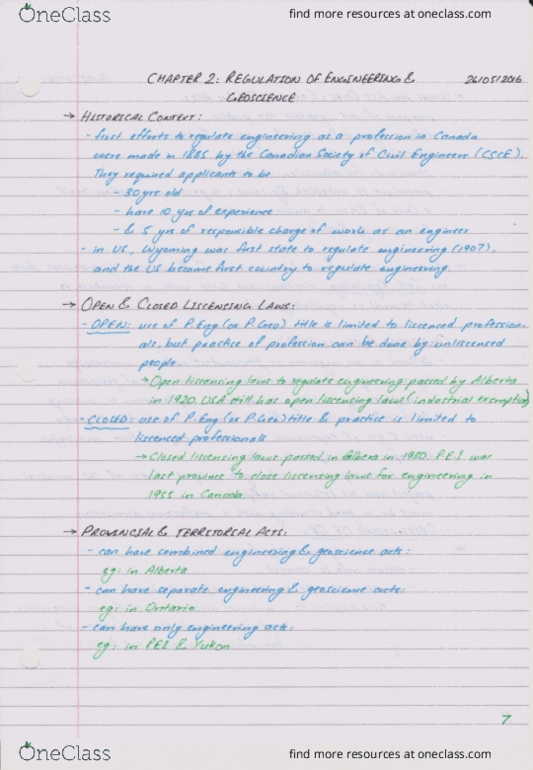 OneClass
find more resources at oneclass.com
CHAPTER 2: REGULATION OF ENGINEERING & 26/05/2016
GEOSCIENCE
→ HISTORICAL CONTEXT:
- first efforts to regulate engineering as a profession in Canada
were made in 1885 by the Canadian Society of Civil Engineers (CSCE).
They required applicants to be
- 30 yrs old
- have 10 yrs of experience
- & 5 yrs of responsible charge of work as an engineer
- in US, Wyoming was first state to regulate engineering (1907),
and the US became first country to regulate engineering.
→ OPEN & CLOSED LISCENSING LAWS:
- OPEN: use of P.Eng (or P.Geo) title is limited to liscenced profession-
als, but practice of profession can be done by unliscensed
people.
→ Open liscensing laws to regulate engineering passed by Alberta
in 1920. USA still has open liscensing laws (industrial exemption)
- CLOSED: use of P.Eng (or P.Geo) title & practice is limited to
liscenced professionals
→ Closed liscensing laws passed in Alberta in 1930. PEI was
last province to close liscensing laws for engineering in
1955 in Canada.
→ PROVINCIAL & TERRITORIAL ACTS:
- can have combined engineering & geoscience acts:
eg: in Alberta
- can have separate engineering & geoscience acts:
eg: in Ontario
- can have only engineering acts:
eg: in PEI & Yukon
7
OneClass
find more resources at oneclass.com